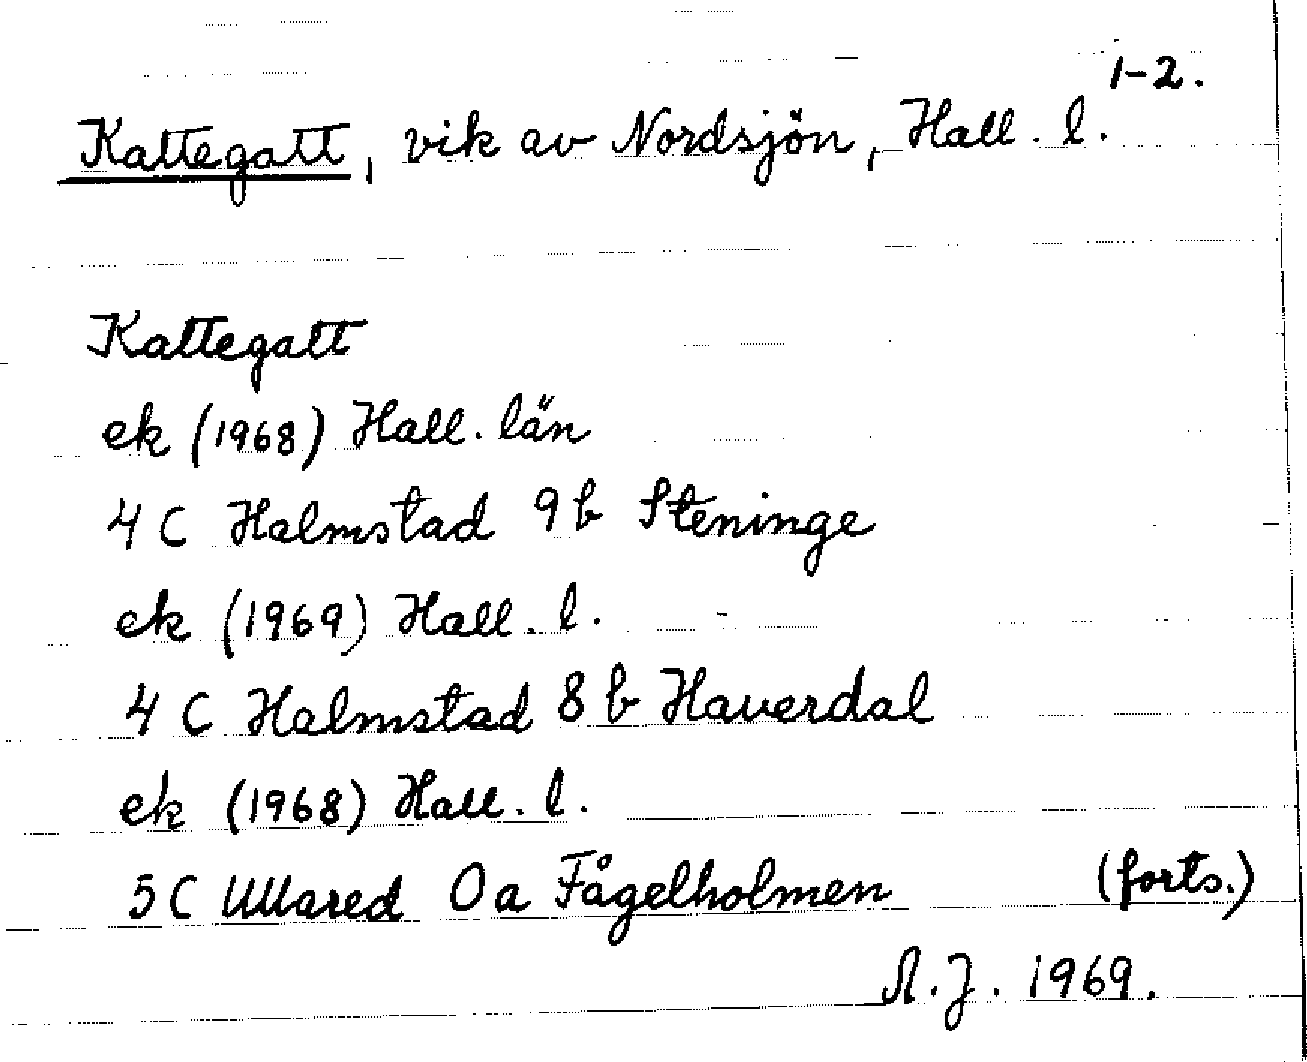 1-2.
Kattegatt, vik av Nordsjön, Hall. l.
Kattegatt
ek (1968) Hall. län
4 C Halmstad 9 b Steninge
ek (1969) Hall. l.
4 C Halmstad 8 b Haverdal
ek (1968) Hall. l.
5 C Ullared 0 a Fågelholmen (forts.)
A.J. 1969.